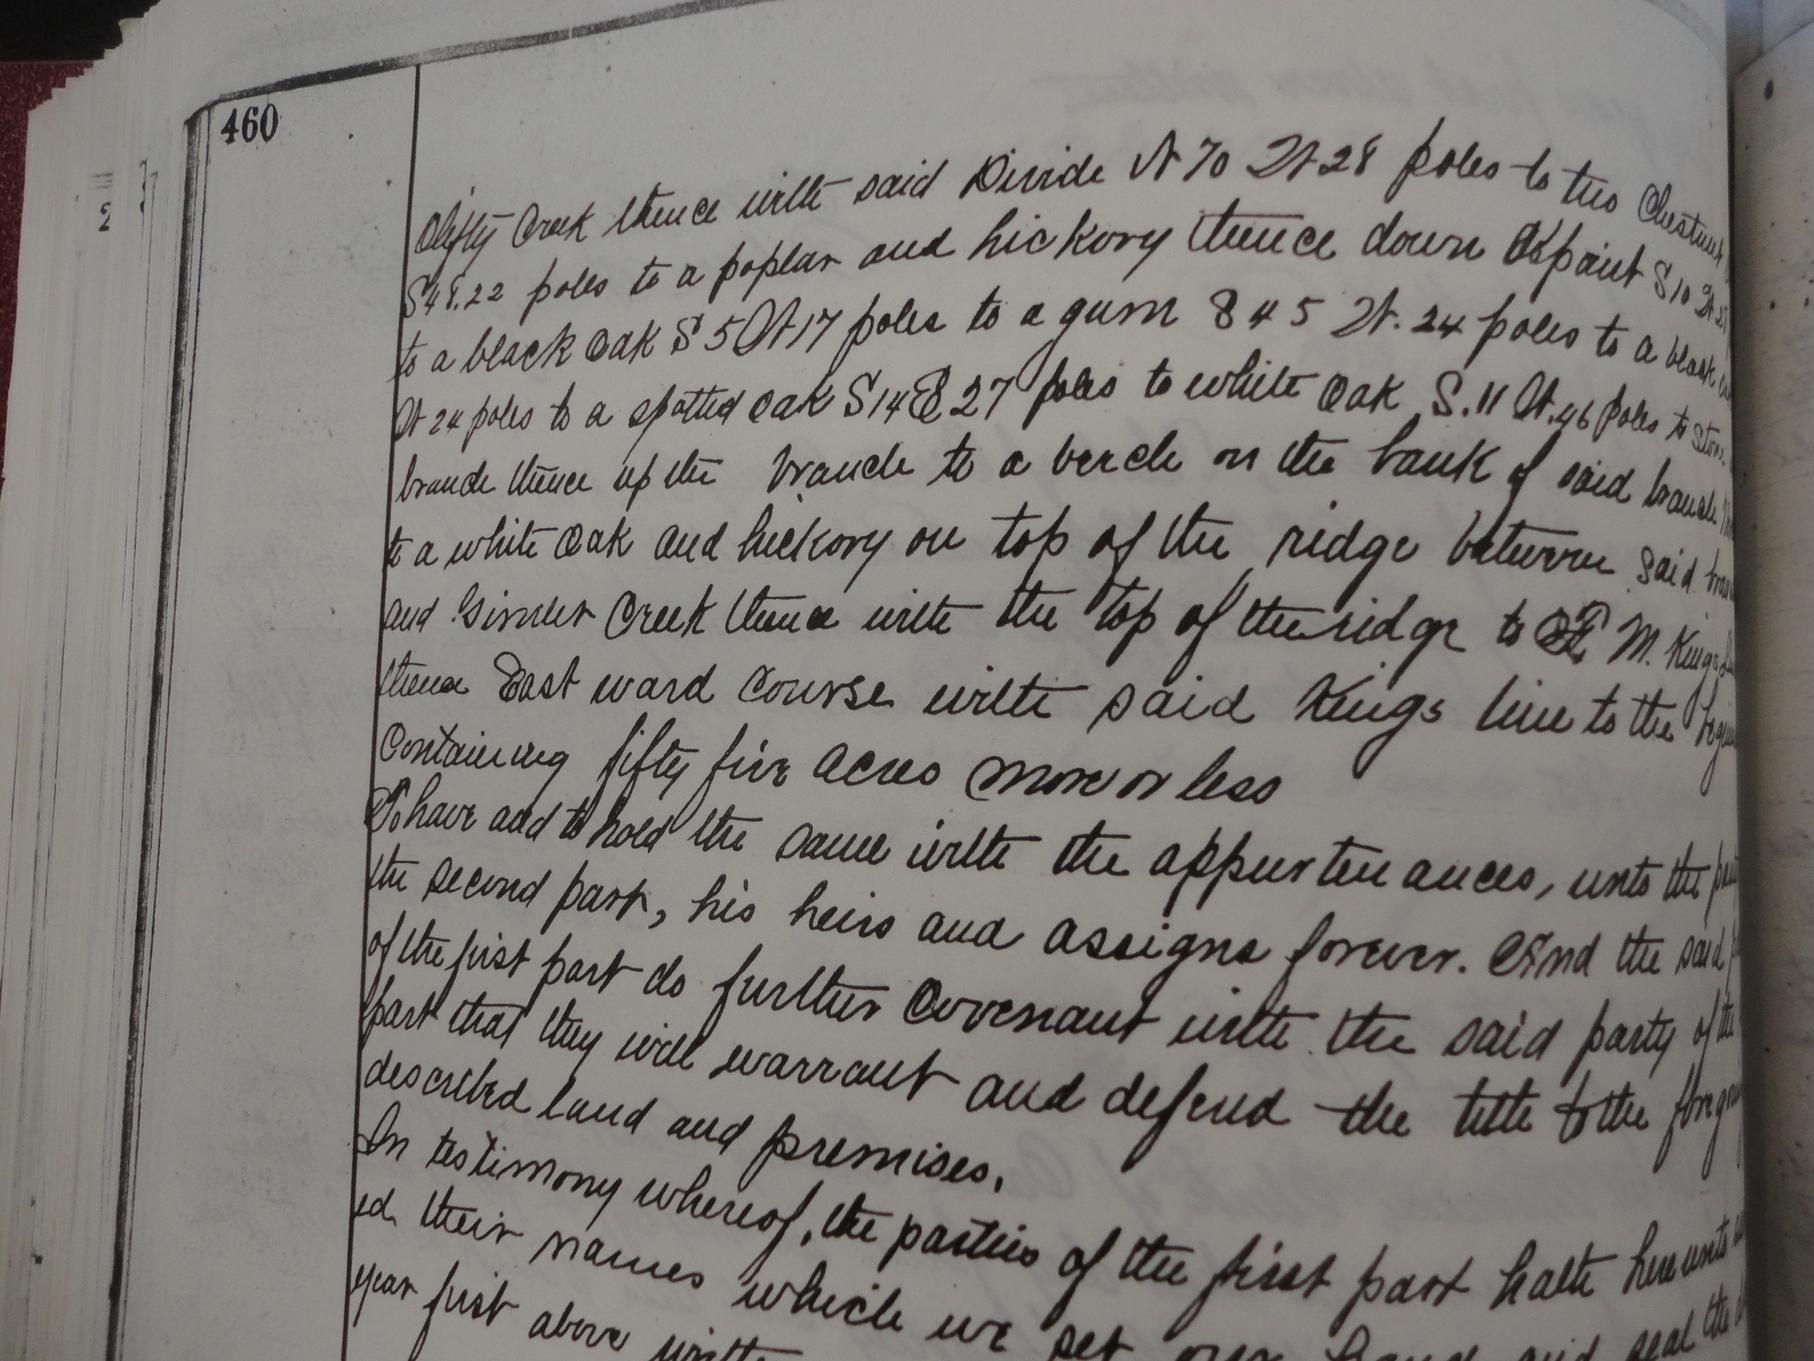 460
Clifty Creek thence with said Divide N 70 W 28 poles to two Chestnut
S 48.22 poles to a poplar and hickory thence down point S 10 W
to a black oak S 5 W 17 poles to a gum S 45 W. 24 poles to a black
W 24 poles to a spotted oak S 14 E 27 poles to white oak S. 11 W. 46 poles to
branch thence up the branch to a beech on the bank of said branch
to a white oak and hickory on top of the ridge between said
and Creek thence with the top of the ridge to M. Kings
thence East ward course with said Kings line to the
Containing fifty five acres more or less
To have and to hold the same with the appurtenances, unto the
the second part, his heirs and assigns forever. And the said
of the first part do further Covenant with the said party of the
part that they will warrant and defend the title to the
described land and premises.
In testimony whereof, the parties of the first part hath here unto
ed their names which we set our hand and seal the
year first above
2